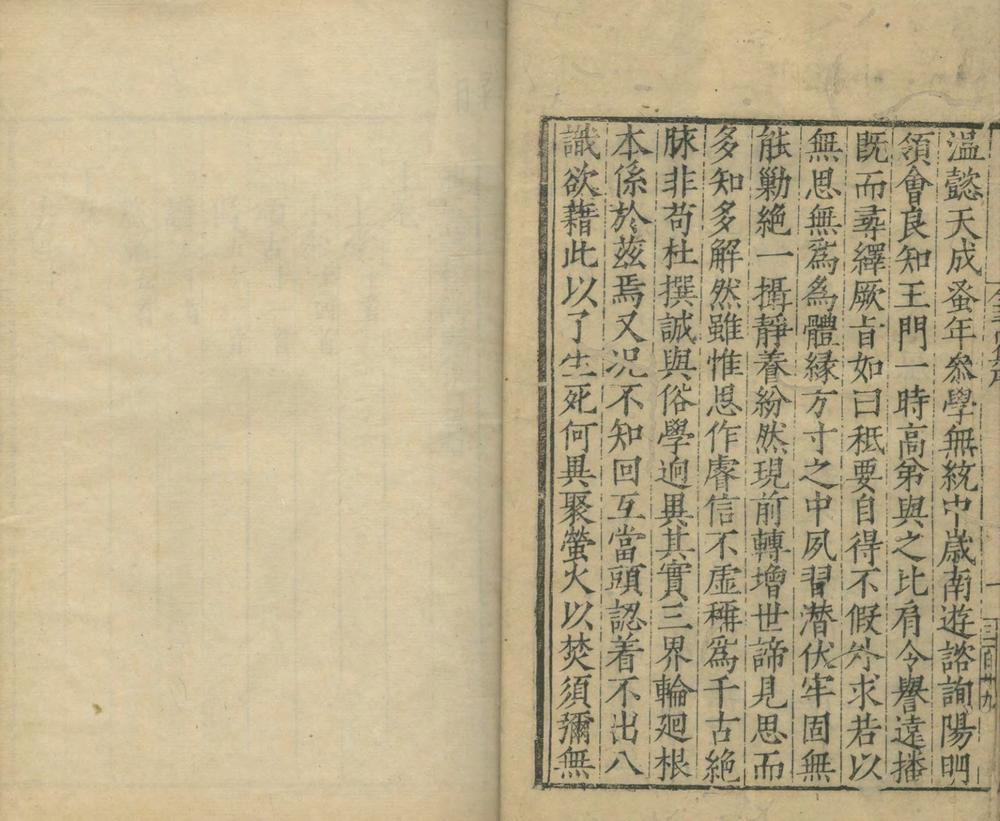 溫懿天成蚤年叅學無統中歳南遊諮詢陽明
領會良知王門一時高弟與之比肩令譽遠播
旣而尋繹厥旨如曰秪要自得不假外求若以
無思無爲爲體緣方寸之中夙習潛伏牢固無
能勦絶一攝靜養紛然現前轉增世諦見思而
多知多解然雖惟思作睿信不虛稱爲千古絶
脉非苟杜撰誠與俗學逈異其實三界輪廻根
本係於兹焉又况不知回互當頭認着不出八
識欲藉此以了生死何異聚螢火以焚須彌無